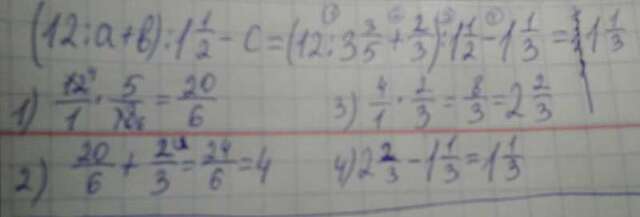 (12:a+b):1 1/2 - c = (12:3 3/5 + 2/3):1 1/2 - 1 1/3 = 1 1/3
1) 12/1 · 5/18 = 20/6
3) 4/1 · 2/3 = 8/3 = 2 2/3
2) 20/6 + 2/3 = 24/6 = 4
4) 2 2/3 - 1 1/3 = 1 1/3